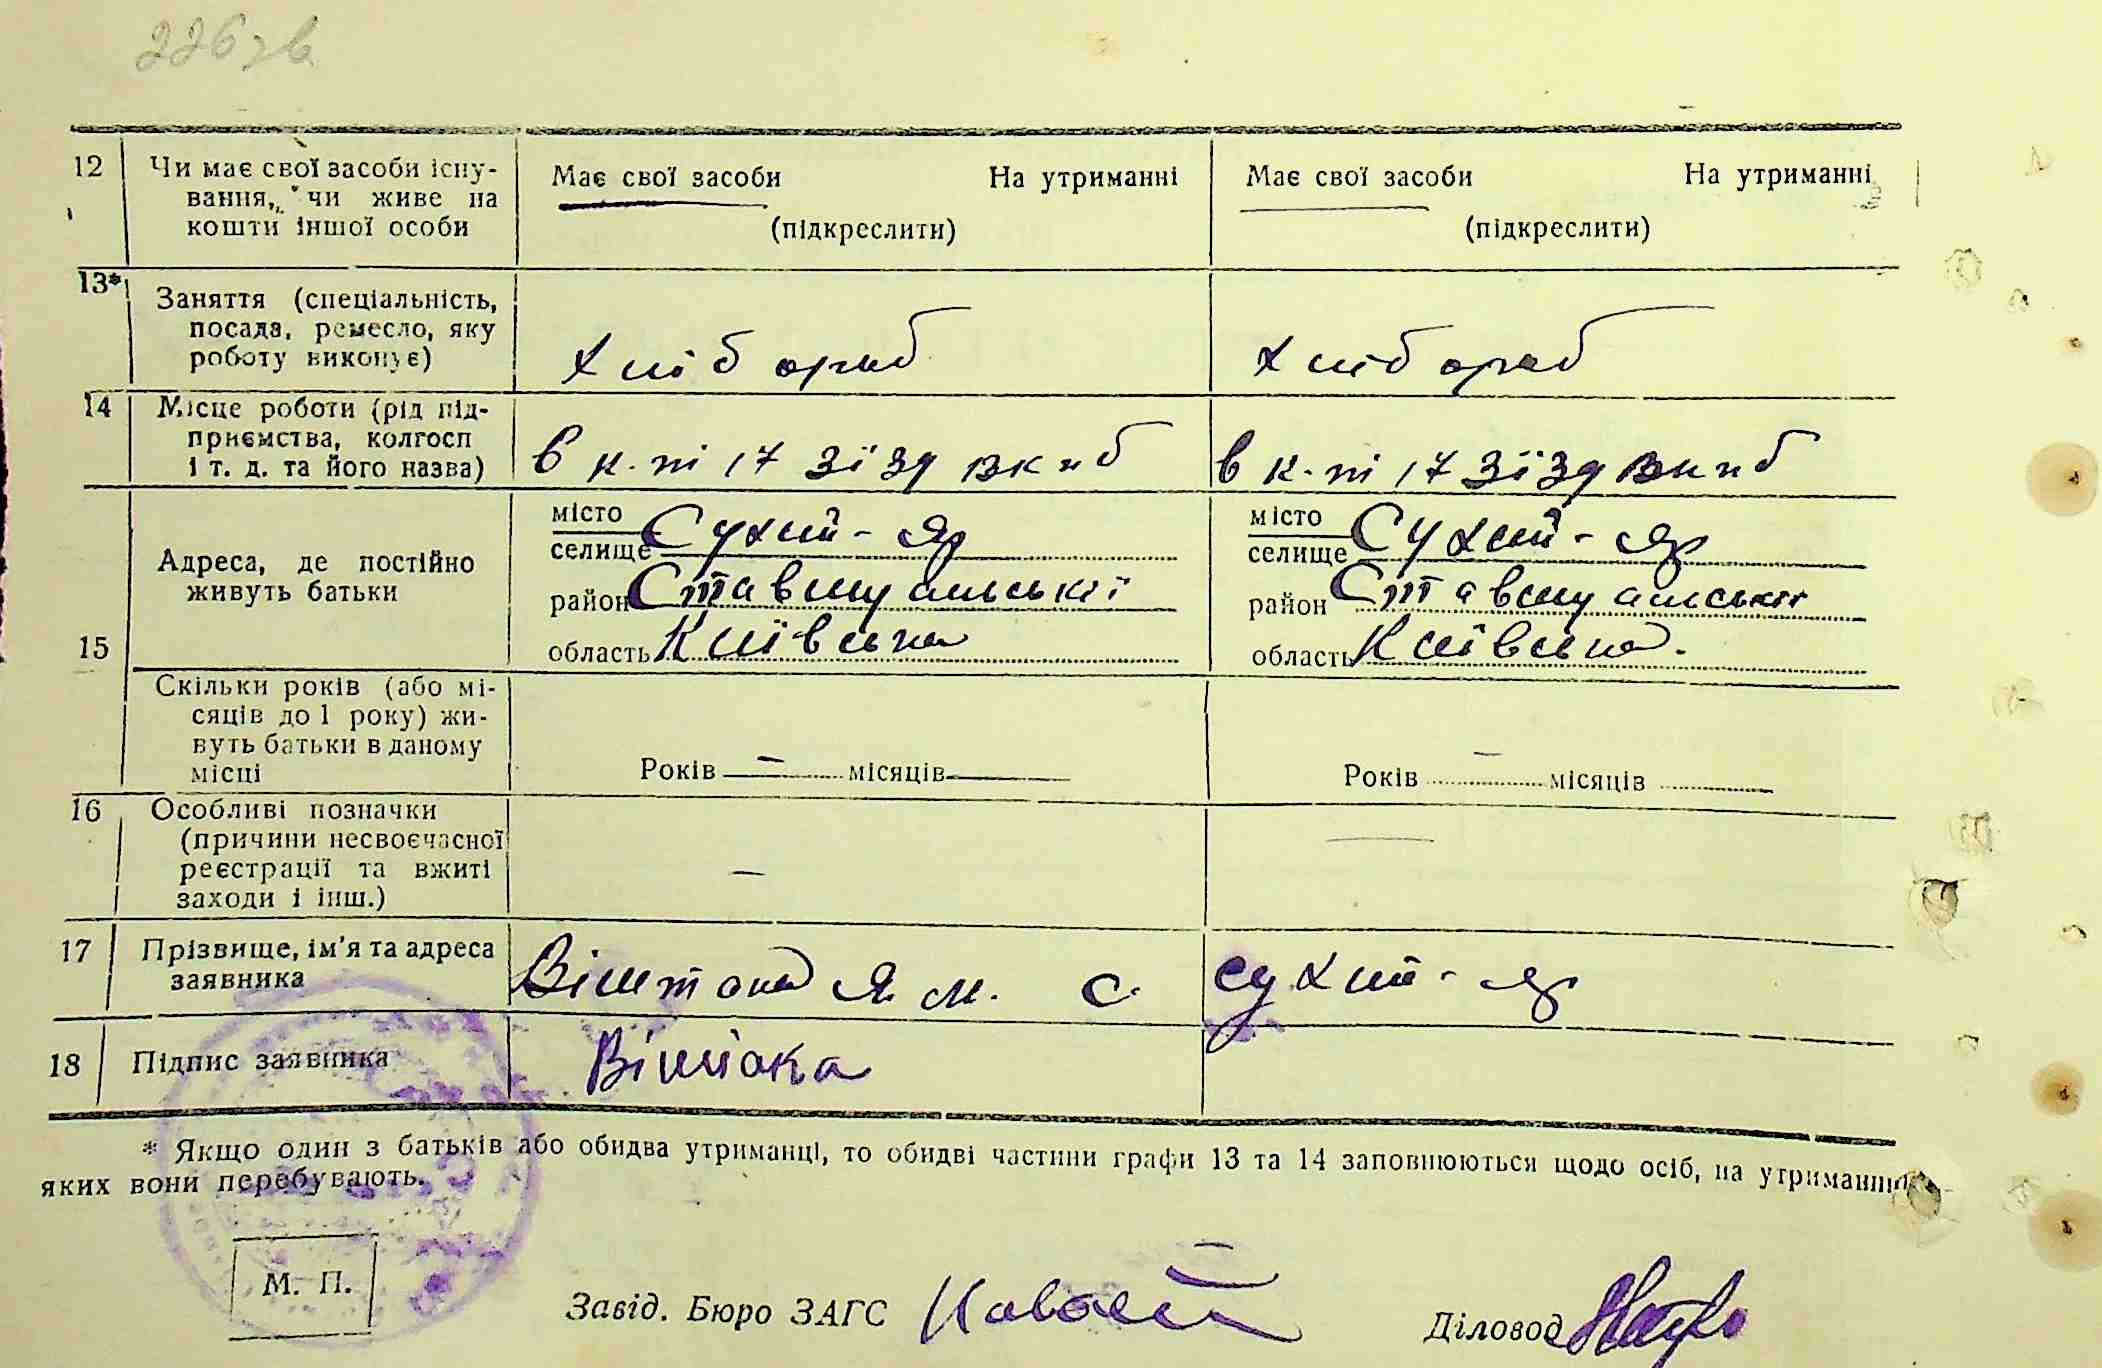 226 зв
12 Чи має свої засоби існу-
вання, чи живе на
кошти іншої особи
Має свої засоби На утриманні
(підкреслити)
Має свої засоби На утриманні
(підкреслити)
13* Заняття (спеціальність,
посада, ремесло, яку
роботу виконує)
Хлібороб
Хлібороб
14 Місце роботи (рід під-
приємства, колгосп
і т. д. та його назва)
в к-пі 17 зїзд вкпб
в к-пі 17 зїзд вкпб
15 Адреса, де постійно
живуть батьки
місто
селище Сухий-яр
район Ставищанській
область Київська
місто
селище Сухий-яр
район Ставищанській
область Київська.
Скільки років (або мі-
сяців до 1 року) жи-
вуть батьки в даному
місці
Років — місяців
Років — місяців
16 Особливі позначки
(причини несвоєчасної
реєстрації та вжиті
заходи і інш.)
—
—
17 Прізвище, ім'я та адреса
заявника
Віштака Я. М. С. Сухий-яр
18 Підпис заявника
Віштака
* Якщо один з батьків або обидва утриманці, то обидві частини графи 13 та 14 заповнюються щодо осіб, на утриманні
яких вони перебувають.
М. П.
Завід. Бюро ЗАГС
Діловод